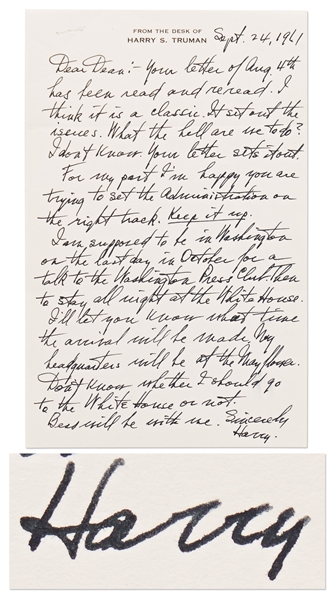 FROM THE DESK OF
HARRY S. TRUMAN
Sept. 24, 1961
Dear Dean:- Your letter of Aug 4th
has been read and reread. I
think it is a classic. It set out the
issues. What the hell are we to do?
I don't know. Your letter sets it out.
For my part I'm happy you are
trying to set the Administration on
the right track. Keep it up.
I am supposed to be in Washington
on the last day in October for a
talk to the Washington Press Club. Then
to stay all night at the White House.
I'll let you know what time
the arrival will be made. My
headquarters will be at the Mayflower.
Don't know whether I should go
to the White House or not.
Bess will be with me. Sincerely
Harry.
Harry